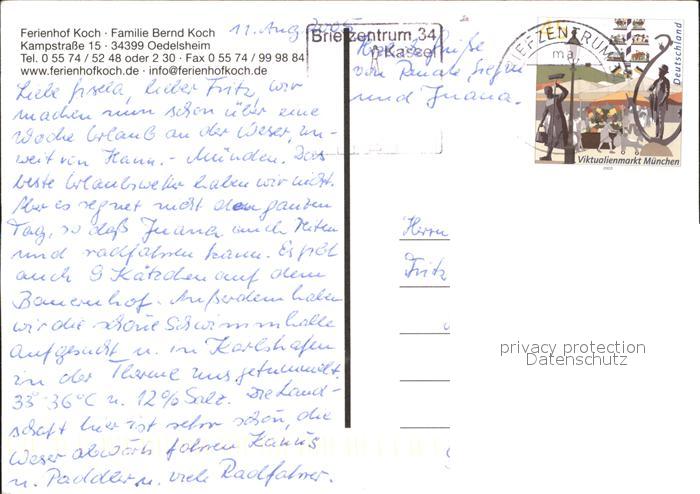 Ferienhof Koch · Familie Bernd Koch
Kampstraße 15 · 34399 Oedelsheim
Tel. 0 55 74 / 52 48 oder 2 30 · Fax 0 55 74 / 99 98 84
www.ferienhofkoch.de · info@ferienhofkoch.de
11. Aug.
Liebe Gisela, lieber Fritz, wir
machen nun schon über eine
Woche Urlaub an der Weser, un-
weit von Hann.-Münden. Das
beste Urlaubswetter haben wir nicht.
Aber es regnet nicht den ganzen
Tag, so daß Juana auch Reiten
und radfahren kann. Es gibt
auch 9 Kätzchen auf dem
Bauernhof. Außerdem haben
wir die schöne Schwimmhalle
aufgesucht u. in Karlshafen
in der Therme uns getummelt.
33-36°C u. 12% Salz. Die Land-
schaft hier ist sehr schön, die
Weser abwärts fahren Kanus
u. Paddler u. viele Radfahrer.
Herzl. Grüße
von Renate
und Juana.
Briefzentrum 34
Kassel
BRIEFZENTRUM
Deutschland
Viktualienmarkt München
2003
Herrn
Fritz
privacy protection
Datenschutz